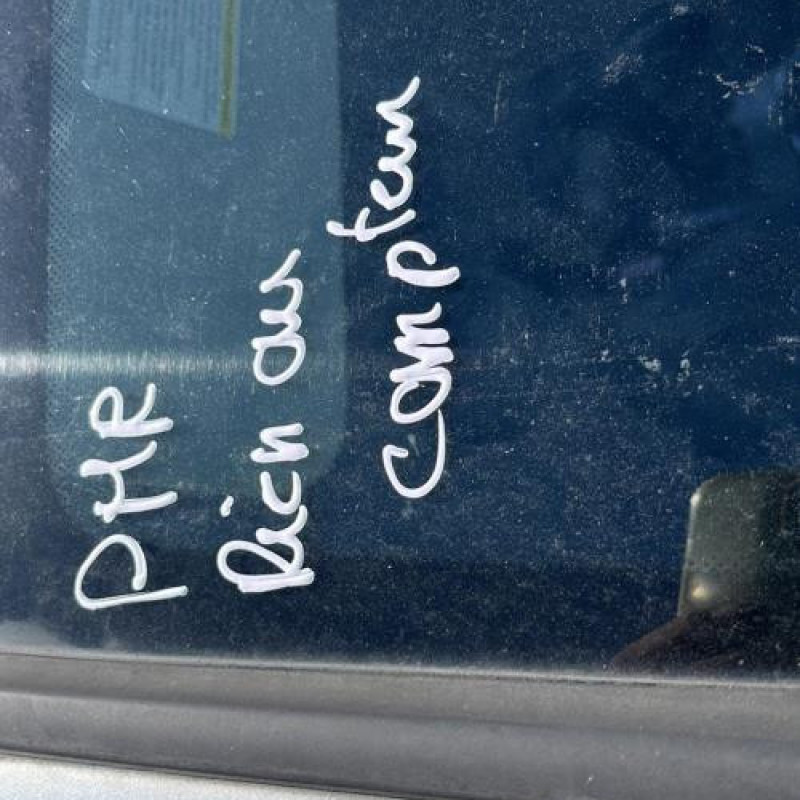 PHR
Rien au
compteur